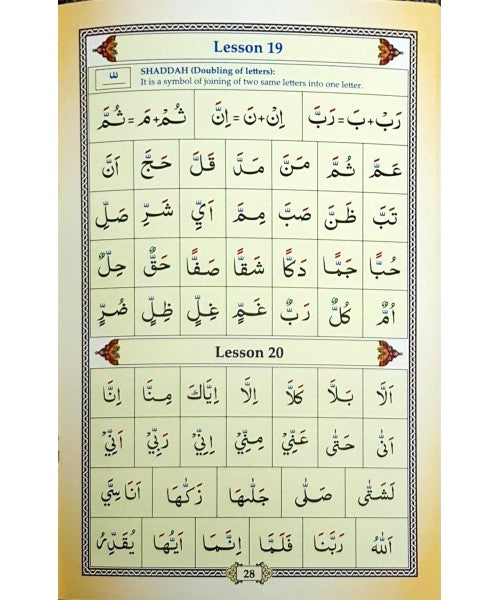 Lesson 19
SHADDAH (Doubling of letters):
It is a symbol of joining of two same letters into one letter.
رَبْ+بَ=رَبَّ اِنْ+نَ=اِنَّ ثُمْ+مَ=ثُمَّ
عَمَّ ثُمَّ مَنَّ مَدَّ قَلَّ حَجَّ اَنَّ
تَبَّ ظَنَّ صَبَّ مِمَّ اَيِّ شَرِّ صَلِّ
حُبًّا جَمًّا دَكًّا شَقًّا صَفًّا حَقٌّ حِلٌّ
اُمٌّ كُلٌّ رَبٌّ غَمٍّ غِلٍّ ظِلٍّ ضُرٍّ
Lesson 20
اَلَّا بَلَّا كَلَّا اِلَّا اِيَّاكَ مِنَّا اِنَّا
اَنّٰى حَتّٰى عَنِّيْ مِنِّيْ اِنِّيْ رَبِّيْ اَنِّيْ
لَشَتّٰى صَلّٰى جَلّٰىهَا زَكّٰىهَا
اَللّٰهُ رَبَّنَا فَلَمَّا اِنَّمَا اَيُّهَا يُقَدِّرُ
28